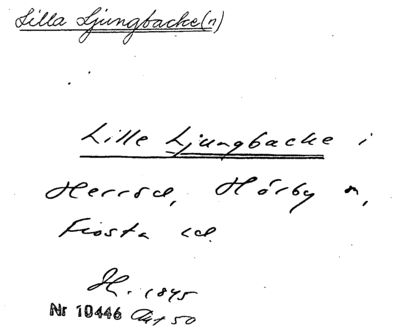 Lilla Ljungbacke(n)
Lille Ljungbacke i
Hörby n,
Frosta
H. 1845
Nr 10446 Akt 50